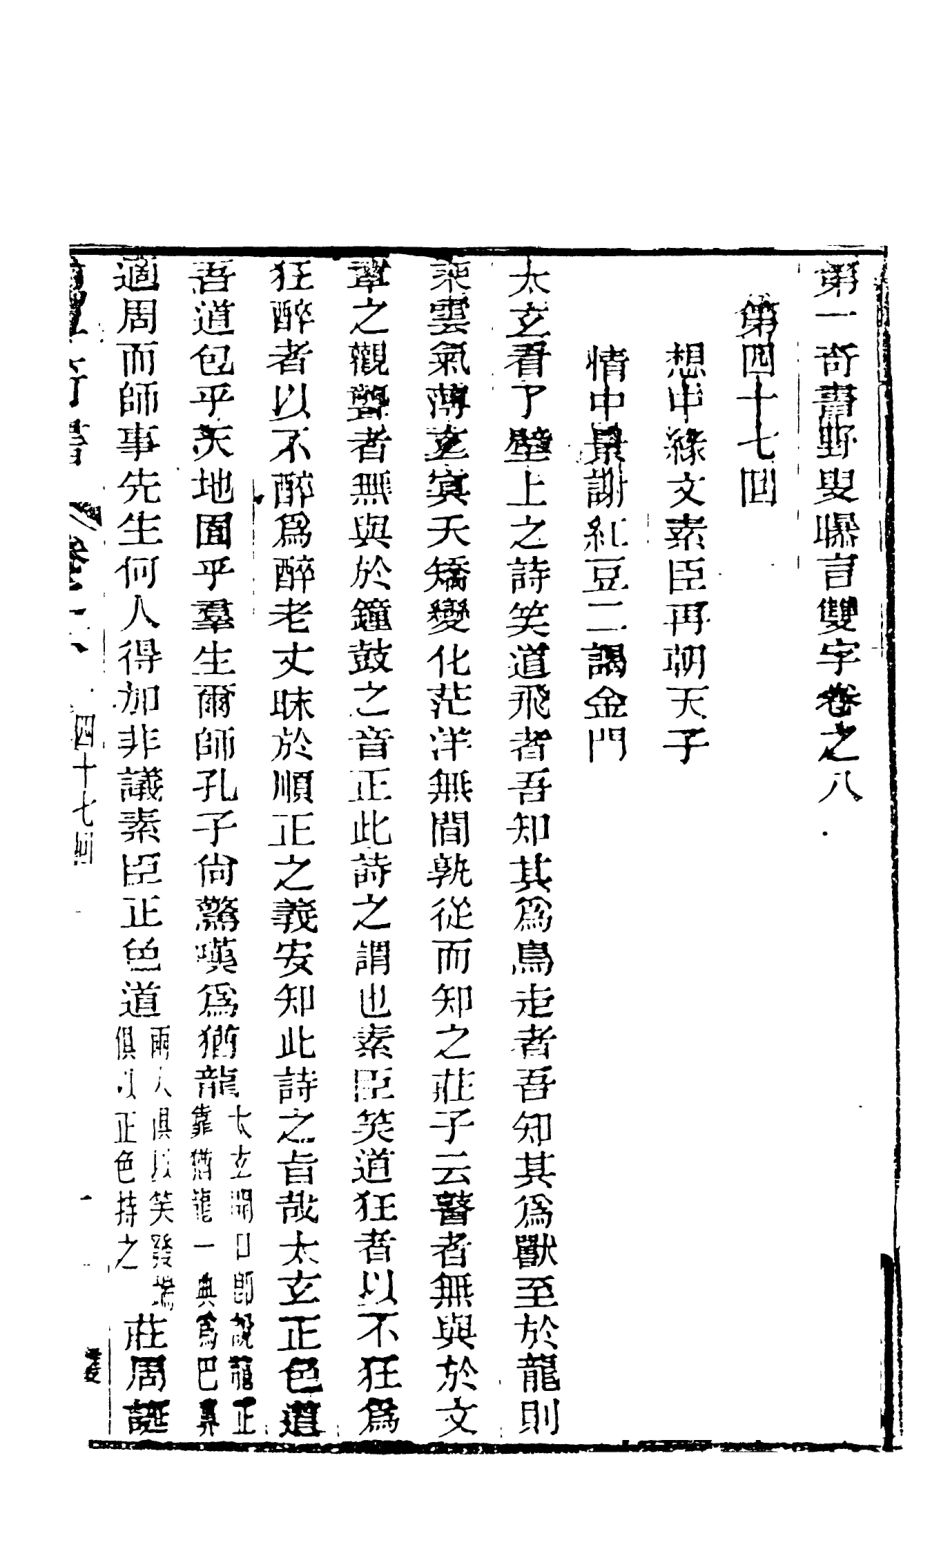 第一奇書野叟曝言雙字卷之八
第四十七回
想中緣文素臣再朝天子
情中景謝紅豆二謁金門
太玄看了壁上之詩笑道飛者吾知其爲鳥走者吾知其爲獸至於龍則
乘雲氣薄玄冥夭矯變化茫洋無間孰從而知之莊子云瞽者無與於文
章之觀聾者無與於鐘鼓之音正此詩之謂也素臣笑道狂者以不狂爲
狂醉者以不醉爲醉老丈昧於順正之義安知此詩之旨哉太玄正色道
吾道包乎天地囿乎羣生爾師孔子尙驚嘆爲猶龍太玄開口卽說龍正靠猶龍一典爲巴鼻
適周而師事先生何人得加非議素臣正色道兩人俱以笑發端俱以正色持之莊周誕
第一奇書 卷之八 四十七回 一